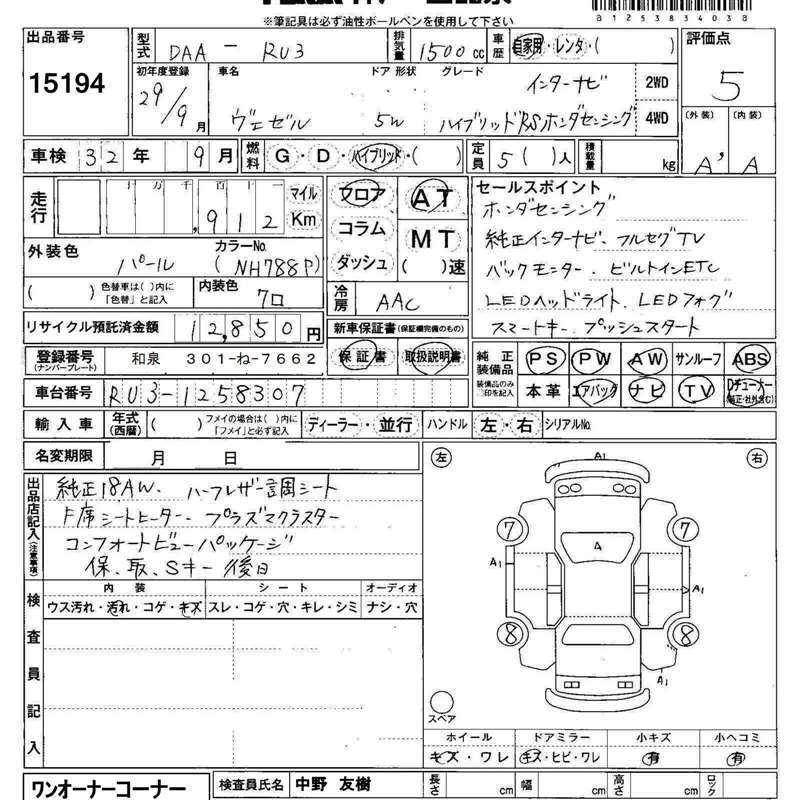 ※筆記具は必ず油性ボールペンを使用して下さい
B1253834038
出品番号 15194
型式 DAA - RU3 排気量 1500 cc 車歴 自家用・レンタ・( )
評価点 5
初年度登録 29/9月 車名 ヴェゼル ドア 形状 5W グレード インターナビ ハイブリッドRSホンダセンシング 2WD 4WD
(外装) A' (内装) A
車検 32年 9月 燃料 G・D・ハイブリッド・( ) 定員 5( )人 積載量 kg
走行 十万千百十一 ,912 マイル Km
フロア コラム ダッシュ
AT MT ( )速
セールスポイント
ホンダセンシング
純正インターナビ、フルセグTV
バックモニター、ビルトインETC
LEDヘッドライト、LEDフォグ
スマートキー、プッシュスタート
外装色 パール カラーNo. (NH788P)
( ) 色替車は( )内に「色替」と記入 内装色 クロ
冷房 AAC
リサイクル預託済金額 12,850円
新車保証書(保証欄完備のもの)
保証書 取扱説明書
登録番号(ナンバープレート) 和泉 301-ね-7662
純正装備品 装備品のみ○印を記入
PS PW AW サンルーフ ABS
本革 エアバック ナビ TV Dチューナー(純正・社外含む)
車台番号 RU3-1258307
輸入車 年式(西暦) ( ) フメイの場合は( )内に「フメイ」と必ず記入 ディーラー・並行 ハンドル 左・右 シリアルNo.
名変期限 月 日
出品店記入(注意事項)
純正18AW、ハーフレザー調シート
F席シートヒーター、プラズマクラスター
コンフォートビューパッケージ
保、取、Sキー後日
内装 シート オーディオ
ウス汚れ・汚れ・コゲ・キズ スレ・コゲ・穴・キレ・シミ ナシ・穴
検査員記入
左 右
A1
7 7
A
A1 A1
8 8
A1
スペア
ホイール ドアミラー 小キズ 小ヘコミ
キズ・ワレ キズ・ヒビ・ワレ 有 有
ワンオーナーコーナー 検査員氏名 中野 友樹 長さ cm 幅 cm 高さ cm ロック